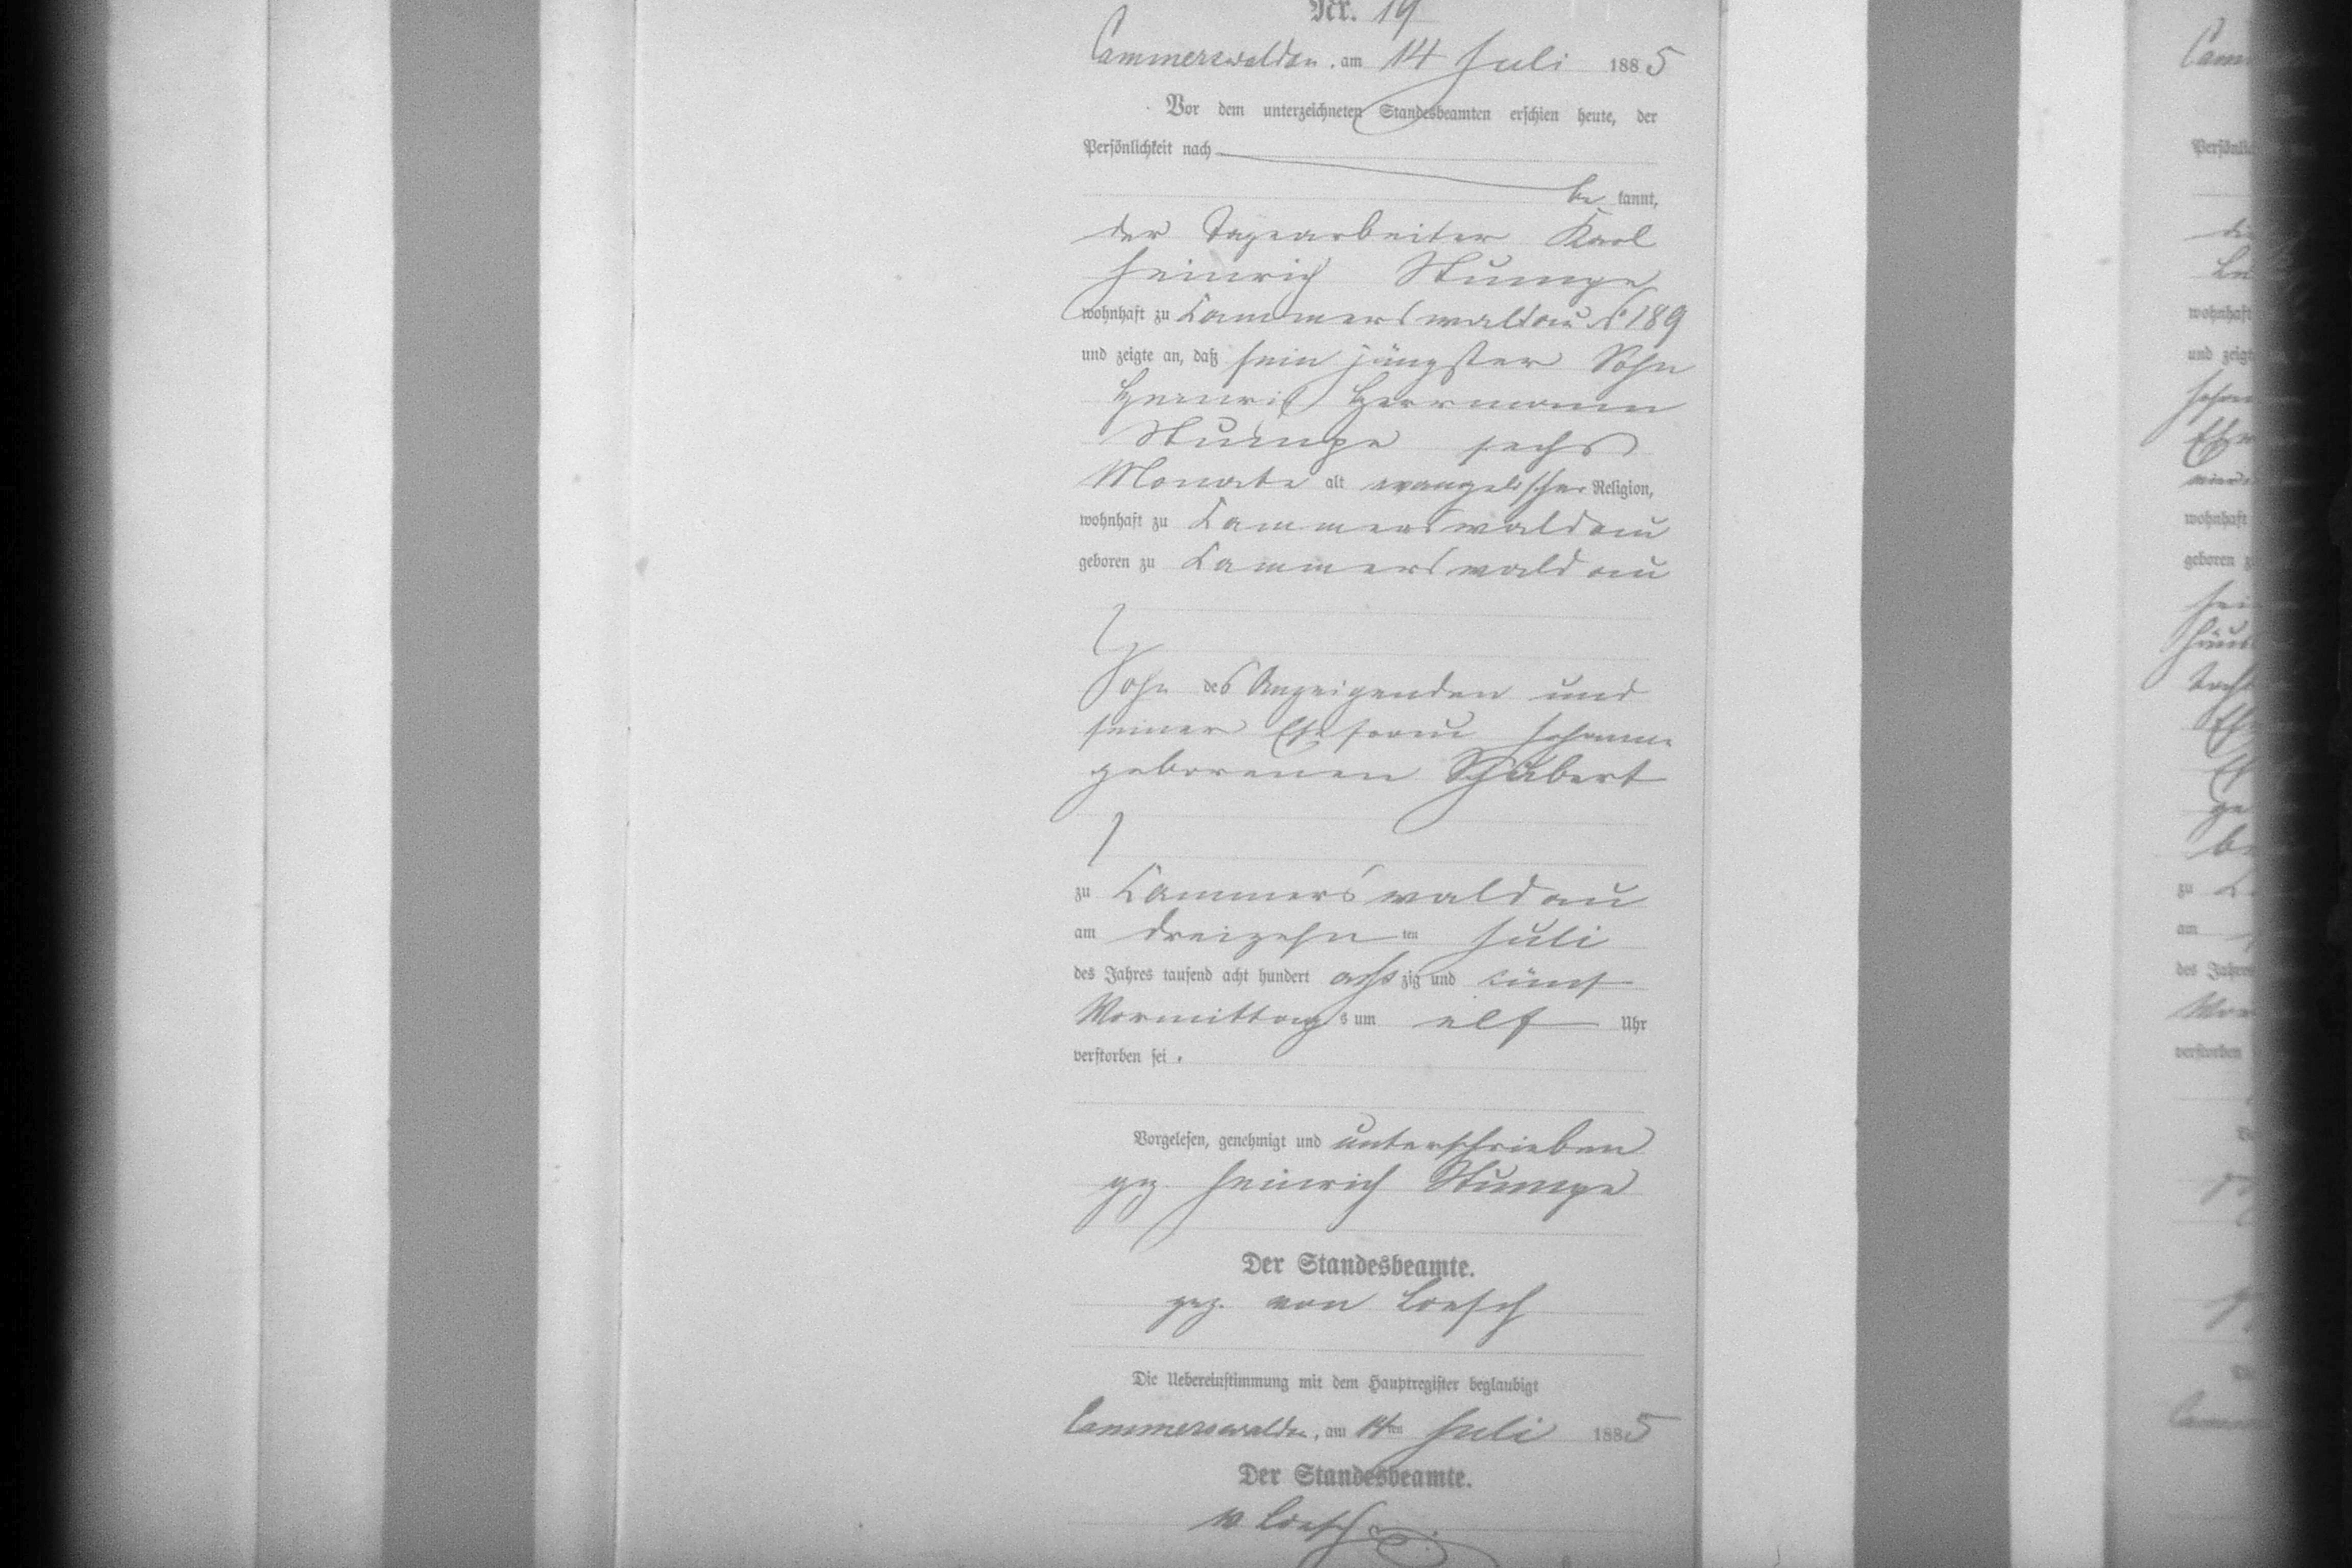 Nr. 19
Cammerswaldau, am 14 Juli 1885
Vor dem unterzeichneten Standesbeamten erschien heute, der
Persönlichkeit nach
be kannt,
der Tagearbeiter Karl
Heinrich Stumpe
wohnhaft zu Cammerswaldau No 189
und zeigte an, daß sein jüngster Sohn
Heinrich Herrmann
Stumpe sechs
Monate alt evangelischer Religion,
wohnhaft zu Cammerswaldau
geboren zu Cammerswaldau
Sohn des Anzeigenden und
seiner Ehefrau Johanne
geborenen Schubert
zu Cammerswaldau
am dreizehn ten Juli
des Jahres tausend acht hundert acht zig und fünf
Vormittag s um elf Uhr
verstorben sei.
Vorgelesen, genehmigt und unterschrieben
gez. Heinrich Stumpe
Der Standesbeamte.
gez. von Loesch
Die Uebereinstimmung mit dem Hauptregister beglaubigt
Cammerswaldau, am 14ten Juli 1885
Der Standesbeamte.
v Loesch
wohnhaft
und zeigt
wohnhaft
geboren
zu
am
des Jahres
verstorben